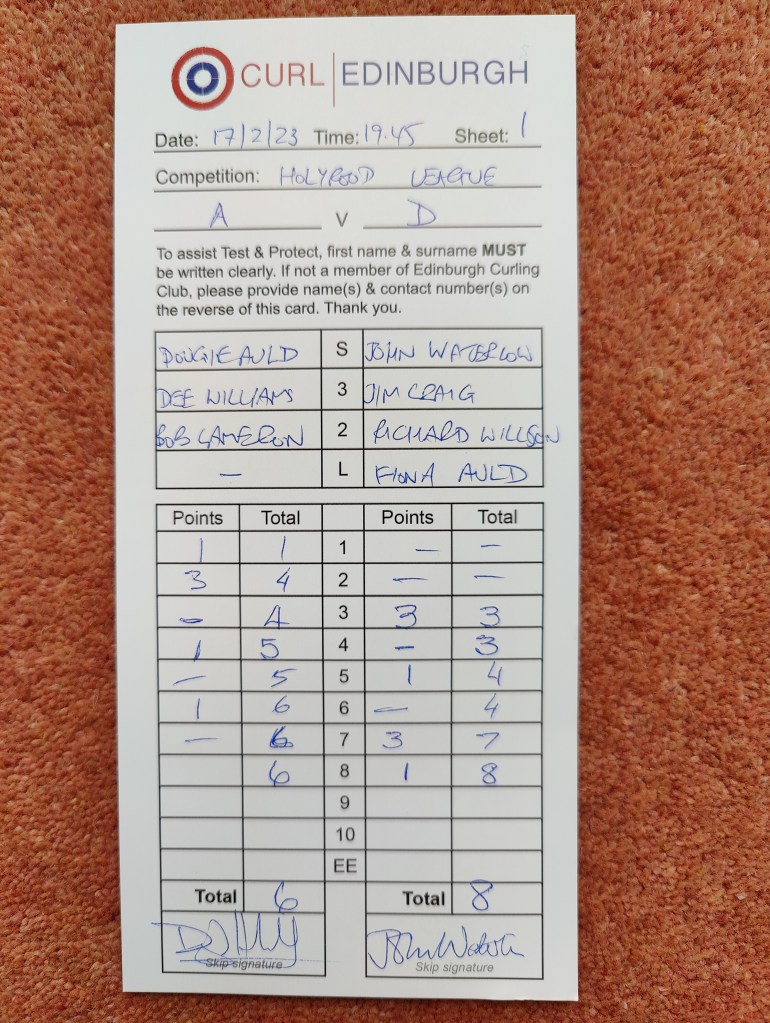 CURL EDINBURGH
Date: 17/2/23 Time: 19.45 Sheet: 1
Competition: HOLYROOD LEAGUE
A V D
To assist Test & Protect, first name & surname MUST
be written clearly. If not a member of Edinburgh Curling
Club, please provide name(s) & contact number(s) on
the reverse of this card. Thank you.
DOUGIE AULD S JOHN WATERLOW
DEE WILLIAMS 3 JIM CRAIG
BOB CAMERON 2 RICHARD WILLSON
— L FIONA AULD
Points Total Points Total
1 1 1 — —
3 4 2 — —
— 4 3 3 3
1 5 4 — 3
— 5 5 1 4
1 6 6 — 4
— 6 7 3 7
6 8 1 8
9
10
EE
Total 6 Total 8
Skip signature Skip signature